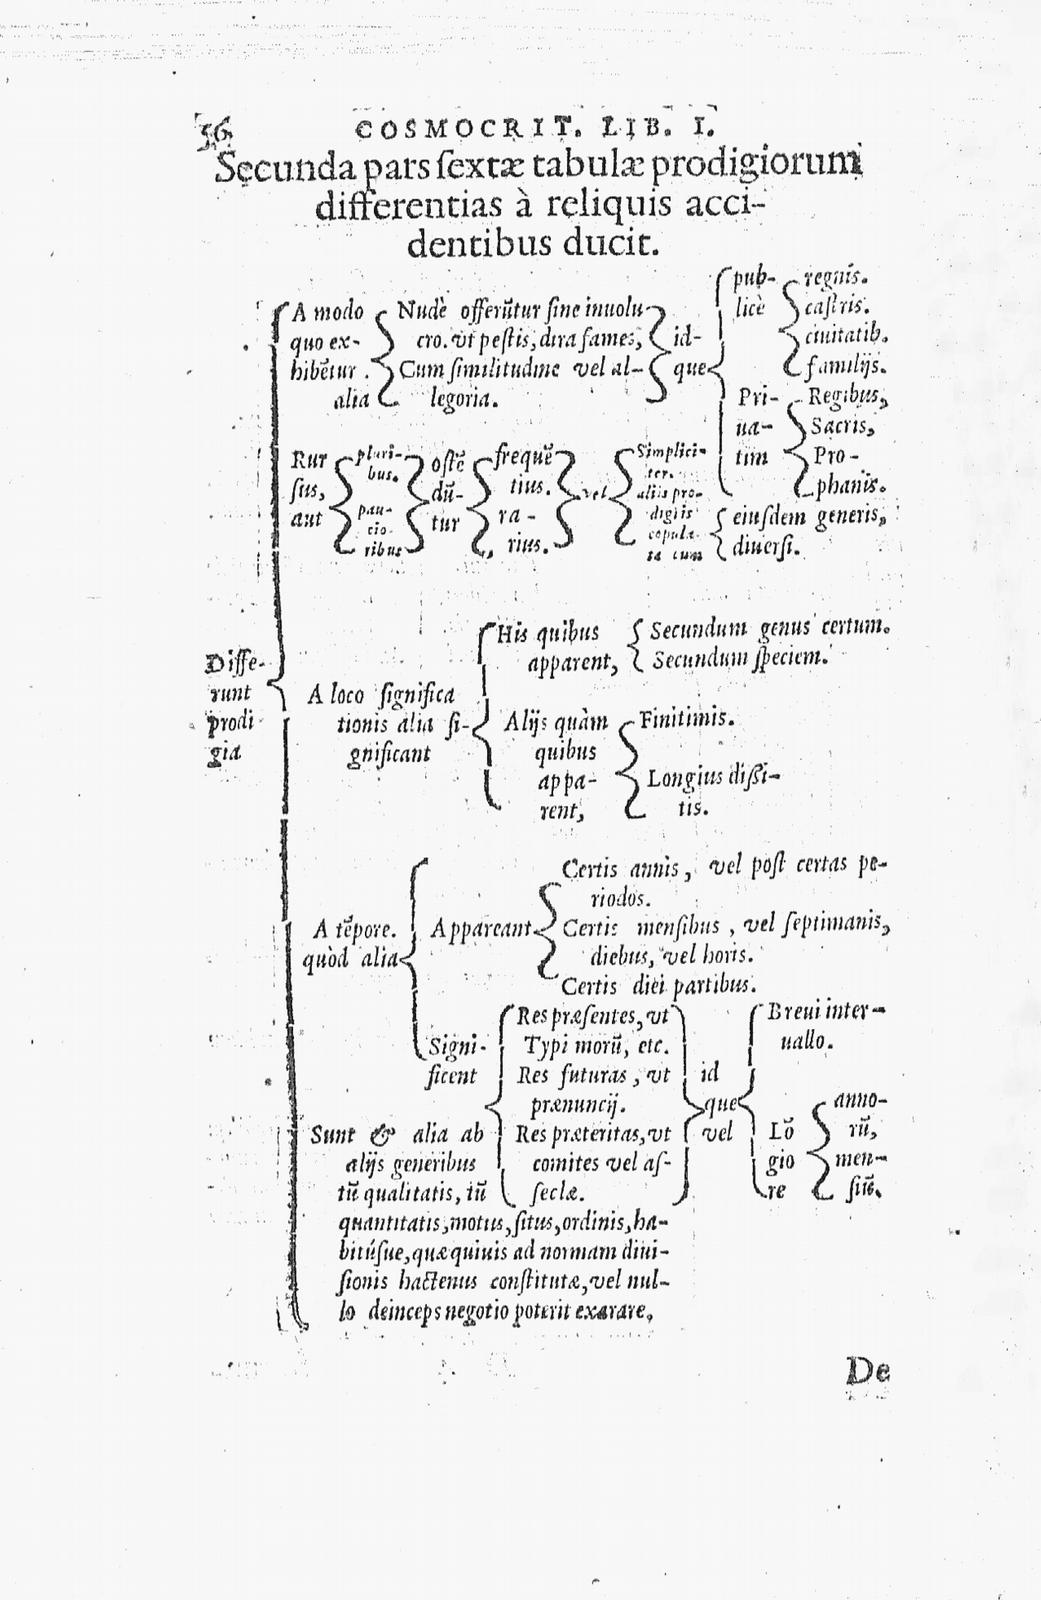 36
COSMOCRIT. LIB. I.
Secunda pars sextæ tabulæ prodigiorum
differentias à reliquis acci-
dentibus ducit.
Diffe-
runt
prodi
gia
A modo
quo ex-
hibētur
alia
Nudè offerūtur sine inuolu
cro. vt pestis, dira fames,
Cum similitudine vel al-
legoria.
id-
que
pub-
licè
regnis.
castris.
ciuitatib.
familijs.
Pri-
ua-
tim
Regibus,
Sacris,
Pro-
phanis.
Rur
sus,
aut
pluri-
bus.
pau-
cio-
ribus
ostē
dū-
tur
frequē
tius.
ra-
rius.
vel
Simplici-
ter.
aliis pro-
digiis
copula-
ta cum
eiusdem generis,
diuersi.
A loco significa
tionis alia si-
gnificant
His quibus
apparent,
Secundum genus certum.
Secundum speciem.
Alijs quàm
quibus
appa-
rent,
Finitimis.
Longius dissi-
tis.
A tēpore.
quòd alia
Appareant
Certis annis, vel post certas pe-
riodos.
Certis mensibus, vel septimanis,
diebus, vel horis.
Certis diei partibus.
Signi-
ficent
Res præsentes, vt
Typi morū, etc.
Res futuras, vt
prænuncij.
Res præteritas, vt
comites vel as-
seclæ.
id
que
vel
Breui inter-
uallo.
Lō
gio
re
anno-
rū,
men-
siū.
Sunt & alia ab
alijs generibus
tū qualitatis, tū
quantitatis, motus, situs, ordinis, ha-
bitúsue, quæ quiuis ad normam diui-
sionis hactenus constitutæ, vel nul-
lo deinceps negotio poterit exarare,
De